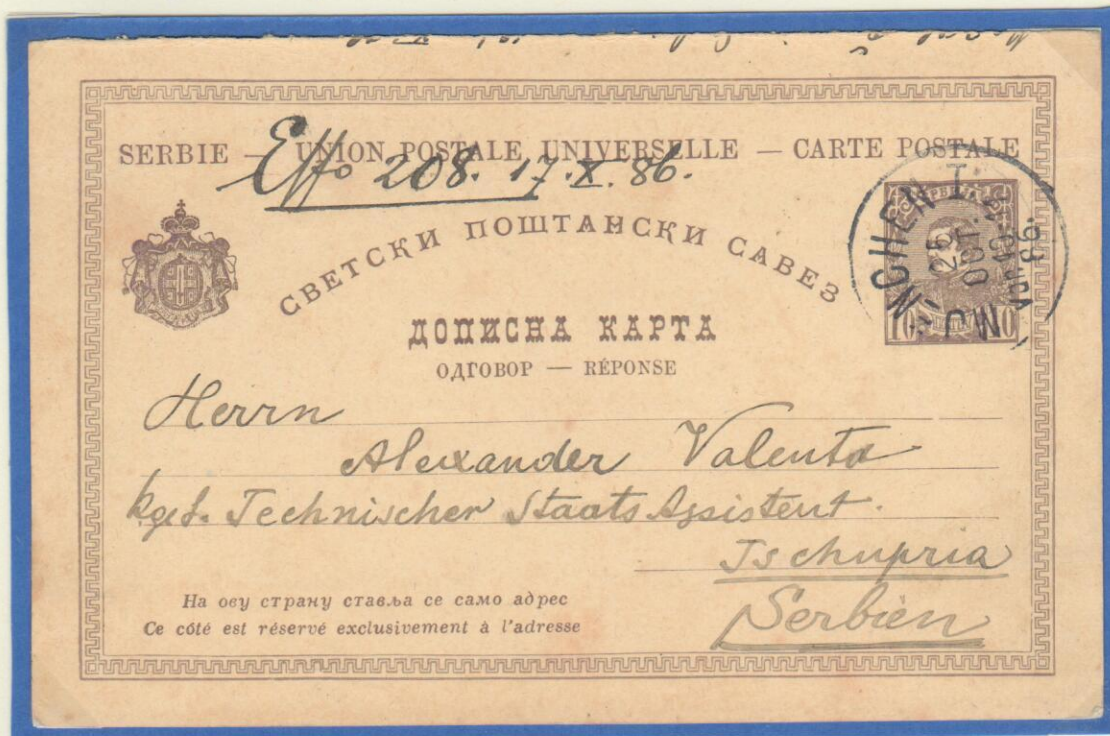 SERBIE — UNION POSTALE UNIVERSELLE — CARTE POSTALE
Effo 208. 17. X. 86.
СВЕТСКИ ПОШТАНСКИ САВЕЗ
ДОПИСНА КАРТА
ОДГОВОР — RÉPONSE
MÜNCHEN I.
25
OCT.
10 10
Herrn
Alexander Valenta
Technischer Staats Assistent.
Tschupria
Serbien
На ову страну ставља се само адрес
Ce côté est réservé exclusivement à l'adresse